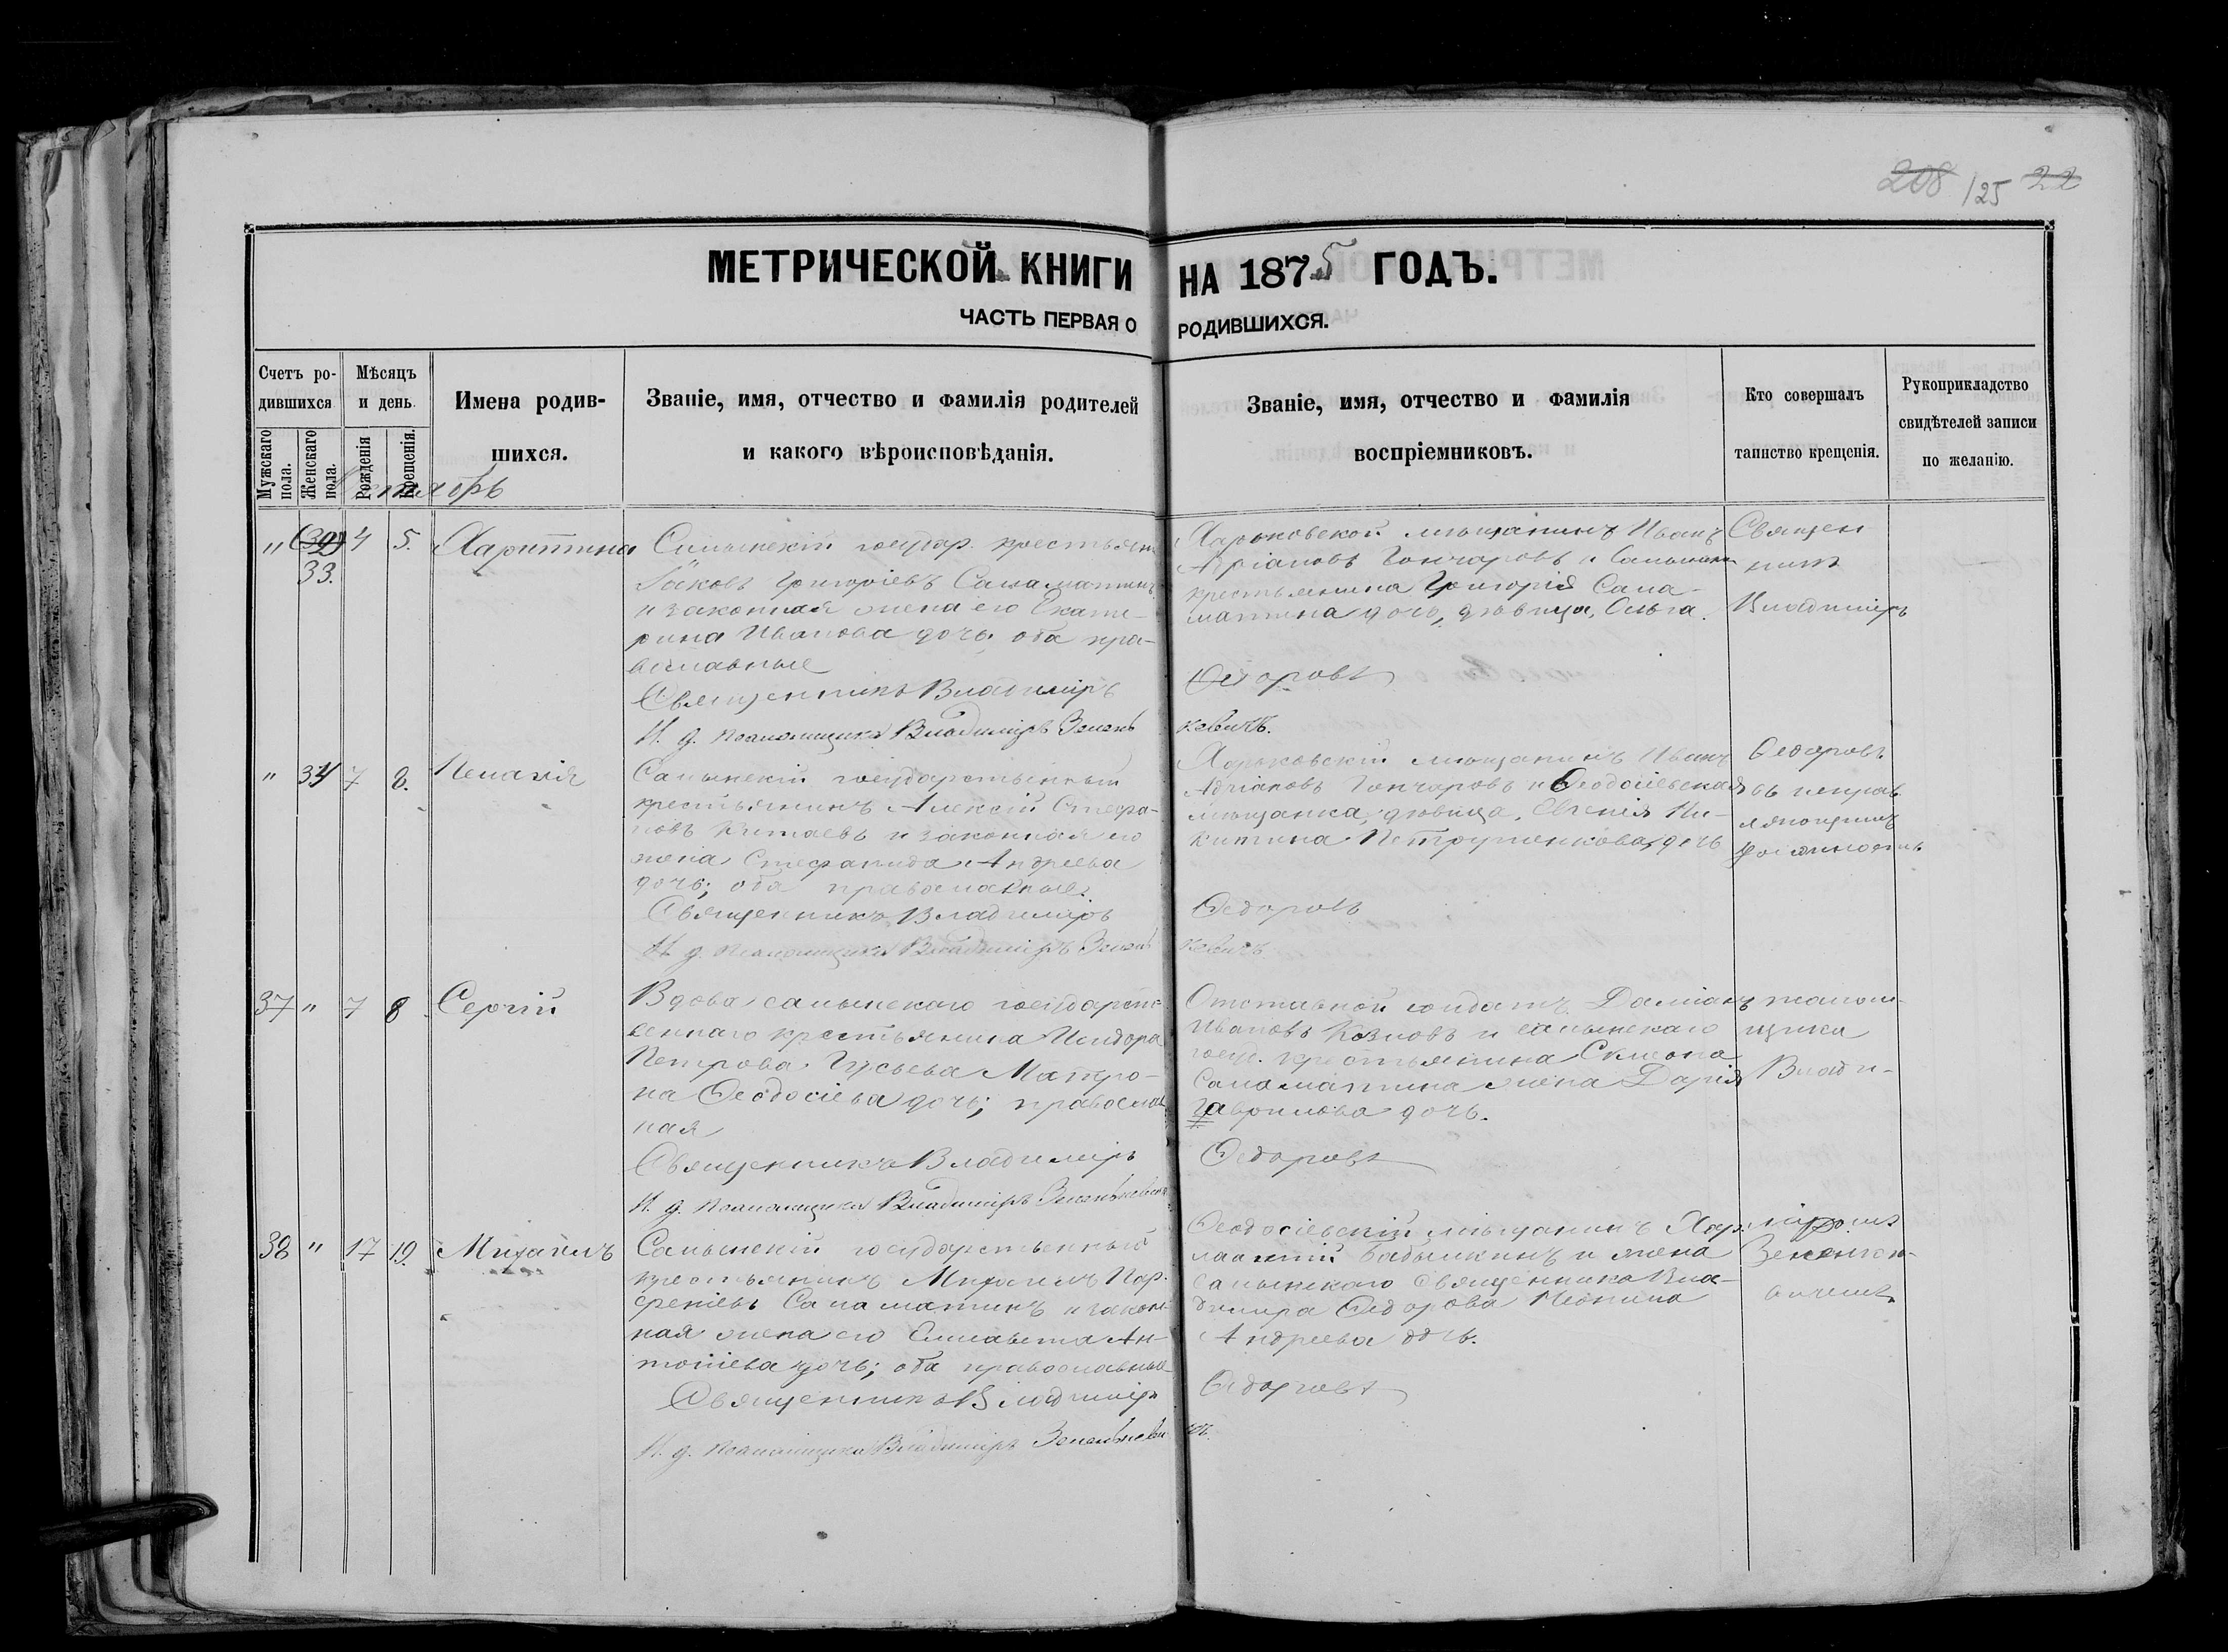 208 125 22
МЕТРИЧЕСКОЙ КНИГИ НА 1875 ГОДЪ.
ЧАСТЬ ПЕРВАЯ О РОДИВШИХСЯ.
Счетъ родившихся
Мужскаго пола.
Женскаго пола.
Мѣсяцъ и день.
Рожденія
Крещенія.
Имена родив-
шихся.
Званіе, имя, отчество и фамилія родителей
и какого вѣроисповѣданія.
Званіе, имя, отчество и фамилія
воспріемниковъ.
Кто совершалъ
таинство крещенія.
Рукоприкладство
свидѣтелей записи
по желанію.
Октябрь
" 33. 4 5. Харитина
государ. крестьянинъ
Іаковъ Григоріевъ Саламатинъ
и законная жена его Екате-
рина Иванова дочь, оба пра-
вославные
Священникъ Владиміръ Ѳедоровъ
И. д. псаломщика Владиміръ Зеленькевичъ.
Харьковской мѣщанинъ Иванъ
Адріановъ Гончаровъ и
крестьянина Григорія Сала-
матина дочь, дѣвица, Ольга.
Священ
никъ
Владиміръ
" 34 7 8. Пелагія
Салынскій государственный
крестьянинъ Алексій Стефа-
новъ Китаевъ и законная его
жена Стефанида Андреева
дочь; оба православные.
Священникъ Владиміръ Ѳедоровъ
И. д. псаломщика Владиміръ Зеленькевичъ
Харьковскій мѣщанинъ Иванъ
Адріановъ Гончаровъ и Ѳеодосіевская
мѣщанка, дѣвица, Евгенія Ни-
китина Петрушенкова, дочь
Ѳедоровъ
съ исправ
ляющимъ
должность
37 " 7 8 Сергій
Вдова салынскаго государст-
веннаго крестьянина Исидора
Петрова Гусьева Матро-
на Ѳеодосіева дочь; православ
ная
Священникъ Владиміръ Ѳедоровъ
И. д. псаломщика Владиміръ Зеленькевичъ
Отставной солдатъ Даміанъ
Ивановъ Козловъ и салынскаго
госуд. крестьянина Симеона
Саламатина жена Дарія
Гаврилова дочь.
псалом-
щика
Влади-
38 " 17 19. Михаилъ
Салынскій государственный
крестьянинъ Михаилъ Пар-
феніевъ Саламатинъ и закон-
ная жена его Елисавета Ан-
тоніева дочь; оба православные
Священникъ Владиміръ Ѳедоровъ
И. д. псаломщика Владиміръ Зеленькевичъ.
Ѳеодосіевскій мѣщанинъ Хар-
лампій Бабышкинъ и жена
салынскаго священника Вла-
диміра Ѳедорова
Андреева дочь.
міромъ
Зеленьке-
вичемъ